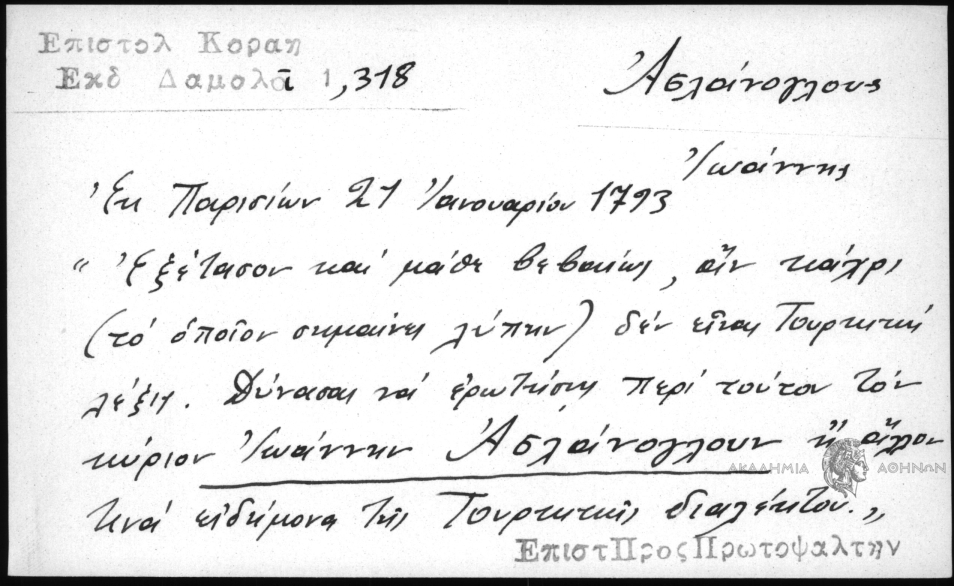 Επιστολ Κοραη
Εκδ Δαμαλᾶ 1,318
Ἀσλάνογλους
Ἰωάννης
Ἐκ Παρισίων 21 Ἰανουαρίου 1793
"Ἐξέτασον καὶ μάθε βεβαίως, ἂν κάχρι
(τὸ ὁποῖον σημαίνει λύπην) δὲν εἶναι Τουρκικὴ
λέξις. Δύνασαι νὰ ἐρωτήσῃς περὶ τούτου τὸν
κύριον Ἰωάννην Ἀσλάνογλουν ἢ ἄλλον
τινὰ εἰδήμονα τῆς Τουρκικῆς διαλέκτου.„
ΑΚΑΔΗΜΙΑ ΑΘΗΝΩΝ
Επιστ Προς Πρωτοψαλτην